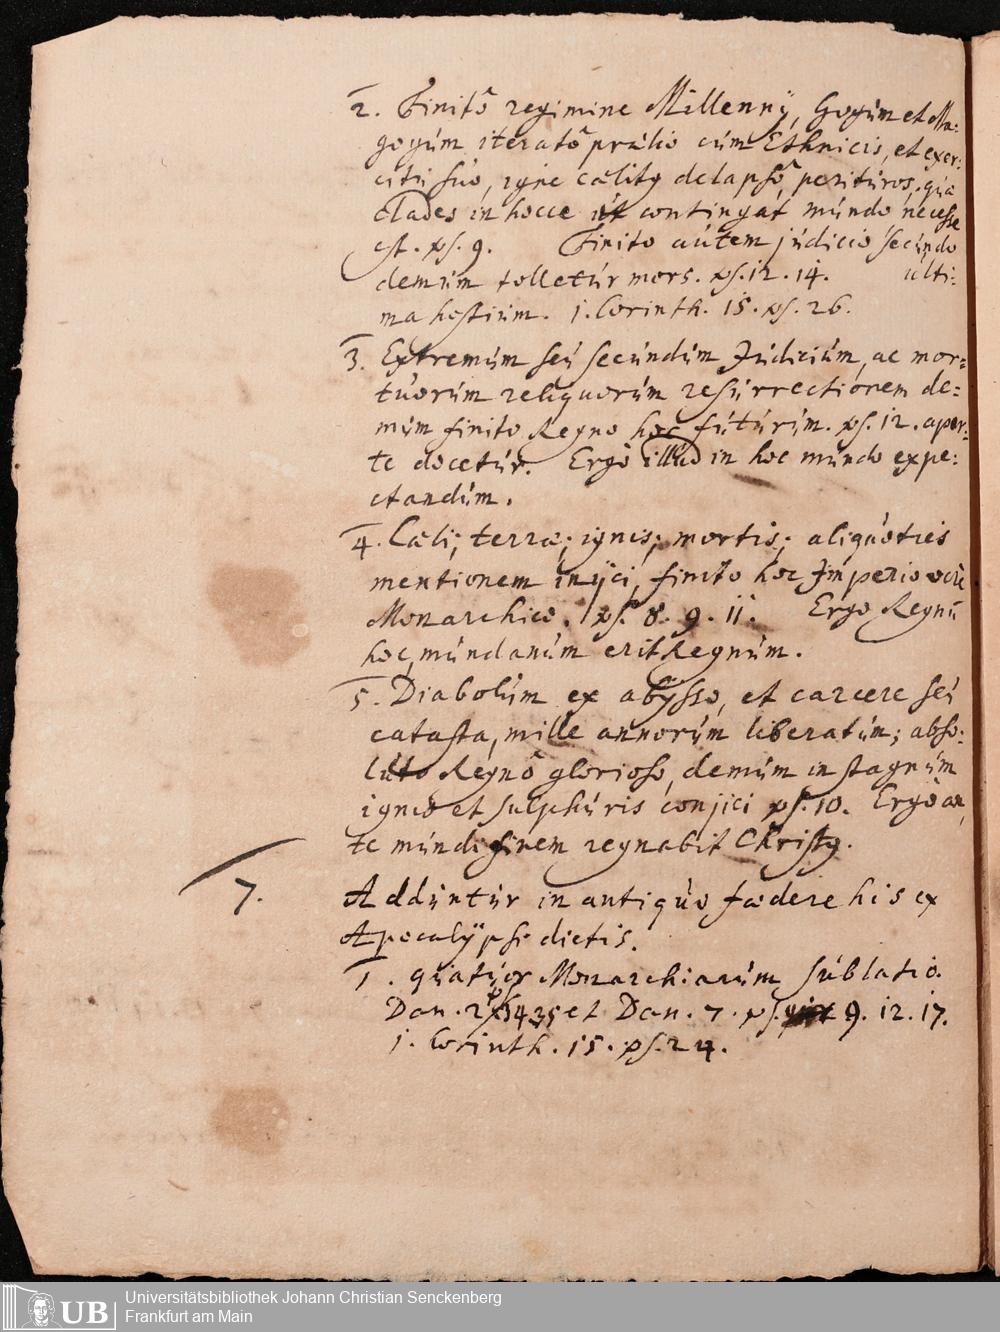 2. Finitô regimine Millennÿ, Gogum et Ma:
gogum iteratô prælio cum Ethnicis, et exer:
citu suo, igne cælity delapsô, perituros. quæ
Clades in hocce ut contingat mundo necesse
est. vs. 9. Finito autem judicio secundo
demum tolletur mors. vs. 12. 14. ulti:
ma hostium. 1. Corinth. 15. vs. 26.
3. Extremum seu secundum Judicium, ac mor:
tuorum reliquorum resurrectionem de:
mum finito Regno hoc futurum. vs. 12. aper:
te docetur. Ergo illud in hoc mundo expe:
ctandum.
4. Cæli; terræ; ignis; mortis; aliquoties
mentionem inÿci, finito hoc Imperio vere
Monarchico. vs. 8. 9. 11. Ergo Regnū
hoc mundanum erit Regnum.
5. Diabolum ex abysso, et carcere seu
catasta, mille annorum liberatum; abso:
luto Regnô glorioso, demum in stagnum
ignis et sulphuris conjici vs. 10. Ergo an
te mundi finem regnabit Christy.
7. Adduntur in antiquo fœdere his ex
Apocalÿpsi dictis.
1. quatuor Monarchiarum sublatio.
Dan. 2 vs 34 35 et Dan. 7. vs. 9. 12. 17.
1. Corinth. 15. vs. 24.
UB
Universitätsbibliothek Johann Christian Senckenberg
Frankfurt am Main